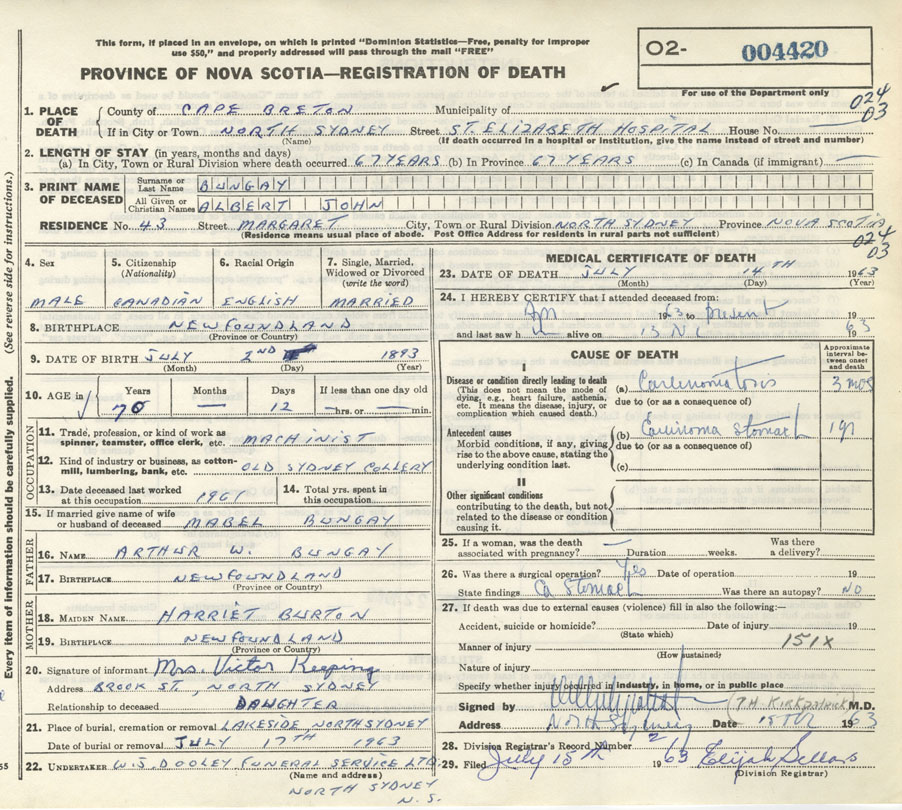 This form, if placed in an envelope, on which is printed "Dominion Statistics—Free, penalty for improper
use $50," and properly addressed will pass through the mail "FREE"
PROVINCE OF NOVA SCOTIA—REGISTRATION OF DEATH
O2- 004420
For use of the Department only
024
03
1. PLACE OF DEATH
County of CAPE BRETON Municipality of
If in City or Town NORTH SYDNEY Street ST. ELIZABETH HOSPITAL House No.
(Name) (If death occurred in a hospital or institution, give the name instead of street and number)
2. LENGTH OF STAY (in years, months and days)
(a) In City, Town or Rural Division where death occurred 67 YEARS (b) In Province 67 YEARS (c) In Canada (if immigrant) —
3. PRINT NAME OF DECEASED
Surname or Last Name BUNGAY
All Given or Christian Names ALBERT JOHN
RESIDENCE No. 43 Street MARGARET City, Town or Rural Division NORTH SYDNEY Province NOVA SCOTIA
(Residence means usual place of abode. Post Office Address for residents in rural parts not sufficient)
024
03
4. Sex 5. Citizenship (Nationality) 6. Racial Origin 7. Single, Married, Widowed or Divorced (write the word)
MALE CANADIAN ENGLISH MARRIED
8. BIRTHPLACE NEWFOUNDLAND
(Province or Country)
9. DATE OF BIRTH JULY 2ND 1893
(Month) (Day) (Year)
10. AGE in Years Months Days If less than one day old
70 — 12 — hrs. or — min.
OCCUPATION
11. Trade, profession, or kind of work as spinner, teamster, office clerk, etc. MACHINIST
12. Kind of industry or business, as cotton-mill, lumbering, bank, etc. OLD SYDNEY COLLERY
13. Date deceased last worked at this occupation 1961 14. Total yrs. spent in this occupation
15. If married give name of wife or husband of deceased MABEL BUNGAY
FATHER
16. NAME ARTHUR W. BUNGAY
17. BIRTHPLACE NEWFOUNDLAND
(Province or Country)
MOTHER
18. MAIDEN NAME HARRIET BURTON
19. BIRTHPLACE NEWFOUNDLAND
(Province or Country)
20. Signature of informant Mrs. Victor Keeping
Address BROOK ST., NORTH SYDNEY
Relationship to deceased DAUGHTER
21. Place of burial, cremation or removal LAKESIDE, NORTH SYDNEY
Date of burial or removal JULY 17TH 1963
22. UNDERTAKER W. J. DOOLEY FUNERAL SERVICE LTD.
(Name and address)
NORTH SYDNEY
N. S.
MEDICAL CERTIFICATE OF DEATH
23. DATE OF DEATH JULY 14TH 1963
(Month) (Day) (Year)
24. I HEREBY CERTIFY that I attended deceased from:
19 to present 19
and last saw h alive on 13 1963
CAUSE OF DEATH
Approximate interval between onset and death
I
Disease or condition directly leading to death
(This does not mean the mode of dying, e.g., heart failure, asthenia, etc. It means the disease, injury, or complication which caused death.)
(a) Carcinomatosis 3 mos
due to (or as a consequence of)
Antecedent causes
Morbid conditions, if any, giving rise to the above cause, stating the underlying condition last.
(b) Carcinoma Stomach 1 yr
due to (or as a consequence of)
(c)
II
Other significant conditions
contributing to the death, but not related to the disease or condition causing it.
25. If a woman, was the death associated with pregnancy? — Duration weeks. Was there a delivery?
26. Was there a surgical operation? Yes Date of operation 19
State findings Ca Stomach Was there an autopsy? NO
27. If death was due to external causes (violence) fill in also the following:—
Accident, suicide or homicide? Date of injury 19
(State which)
Manner of injury 151X
(How sustained)
Nature of injury
Specify whether injury occurred in industry, in home, or in public place
Signed by (T H KIRKPATRICK) M.D.
Address North Sydney Date 15th 1963
28. Division Registrar's Record Number
29. Filed July 15th 1963 Elijah Sellars
(Division Registrar)
Every item of information should be carefully supplied. (See reverse side for instructions.)
55